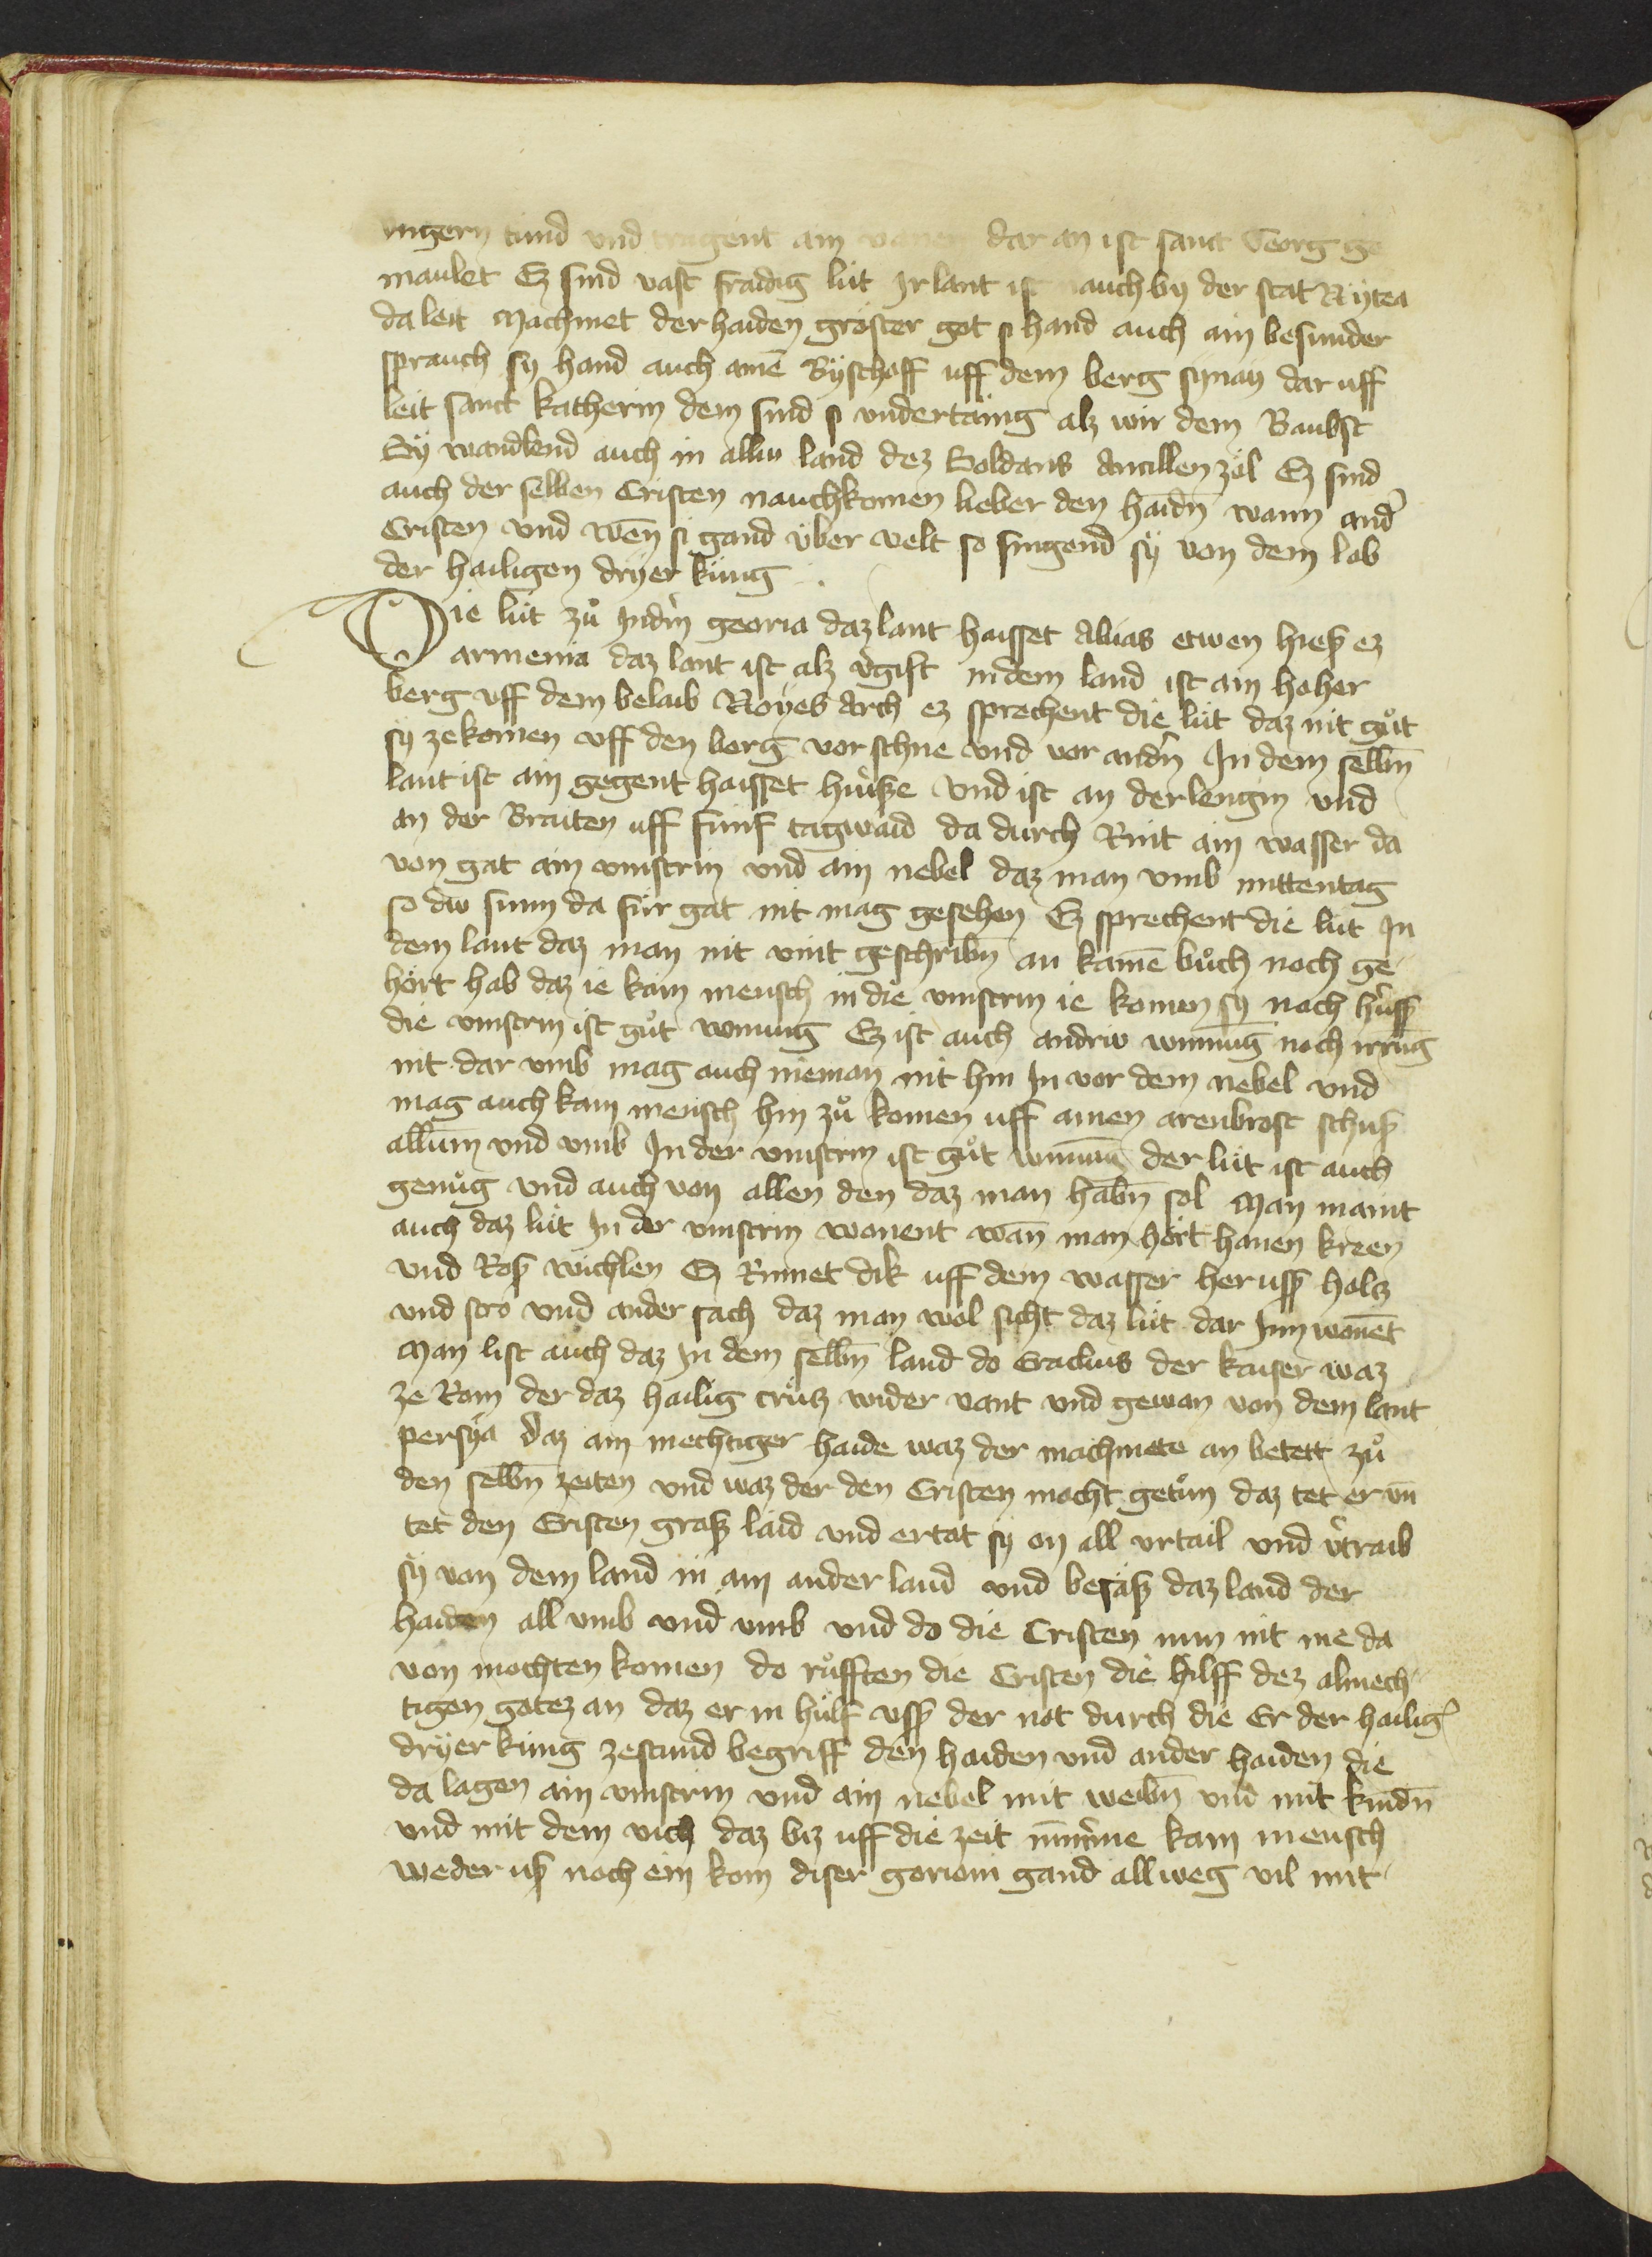 ungern tund und tragent ain vanen dar an ist sanct Georg ge
maulet Ez sind vast fraidig lüt Ir lant ist nauch by der stat Rytea
da leit Machmet der haiden gröster got si hand auch ain besunder
sprauch sy hand auch ainē Byschoff uff dem berg synay dar uff
leit sanct Katherin dem sind si undertänig alz wir dem Baubst
Sy wandlend auch in alliu land dez Soldans Ancillen zöl Ez sind
auch der selben Cristen nauchkomen lieber den haidn̄ wann and᾽
Cristen und wen̄ si gand über velt so singend sÿ von dem lob
der hailigen dryer küng
Die lüt zů Indn᾽ georia daz lant haisset Abias etwen hiesz ez
armenia daz lant ist alz v᾽gift in dem land ist ain hoher
berg uff dem belaib Noyes Arch ez sprechent die lüt daz nit gůt
sy ze komen uff den berg vor schne und vor andn᾽ In dem selbn̄
lant ist ain gegent haisset hinisze und ist an der lengin und
an der Braiten uff funf tagwaid da durch Rint ain wasser da
von gat ain vinstrin und ain nebel daz man umb mittentag
so diu sunn da für gat nit mag gesehen Ez sprechent die lüt In
dem lant daz man nit vint geschribn̄ an kainē bůch noch ge
hört hab daz ie kain mensch in die vinstrin ie komen sy noch h᾽ussz
die vinstrin ist gůt wonung Ez ist auch andriu wonnūg noch irrūg
nit dar umb mag auch nieman nit hin In vor dem nebel und
mag auch kain mensch hin zů komen uff ainen arenbrost schusz
allum̄ und umb In der vinstrin ist gůt der lüt ist auch
genůg und auch von allen den daz man habn̄ sol Man maint
auch daz lüt In der vinstrin wonent wan̄ man hört hanen kreen
und Rosz wüchlen Ez Rinnet dik uff dem wasser her ussz holtz
und stro und ander sach daz man wol sicht daz lüt dar Inn wonēt
Man list auch daz In dem selbn̄ land do Eraclius der kaiser waz
ze Rom der daz hailig crütz wider vant und gewan von dem lant
persÿa Daz ain mechtiger haide waz der machmete an betett zů
den selbn̄ zeiten und waz der den Cristen mocht getůn daz tet er un̄
tet den Cristen grosz laid und ertot sy on all urtail und v᾽traib
sÿ von dem land in ain ander land und besasz daz land der
haiden all umb und umb und do die Cristen nun nit me da
von mochten komen do růfften die Cristen die hilff dez almech
tigen gotez an daz er in hulf ussz der not durch die Er der hailig᾽
dryer küng zestund begriff den haiden und ander haiden die
da lagen ain vinstrin und ain nebel mit weibn̄ und mit kindn̄
und mit dem vich daz biz uff die zeit nimm᾽me kain mensch
weder usz noch ein kom diser goriom gand allweg vil mit